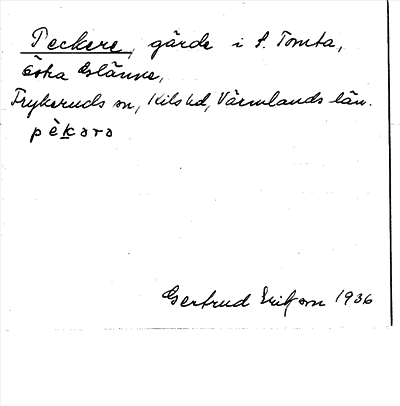 Peckere, gärde i S. Tomta,
Östra Glänne,
Frykeruds sn, Kils hd, Värmlands län.
pèkərə
Gertrud Erikson 1936